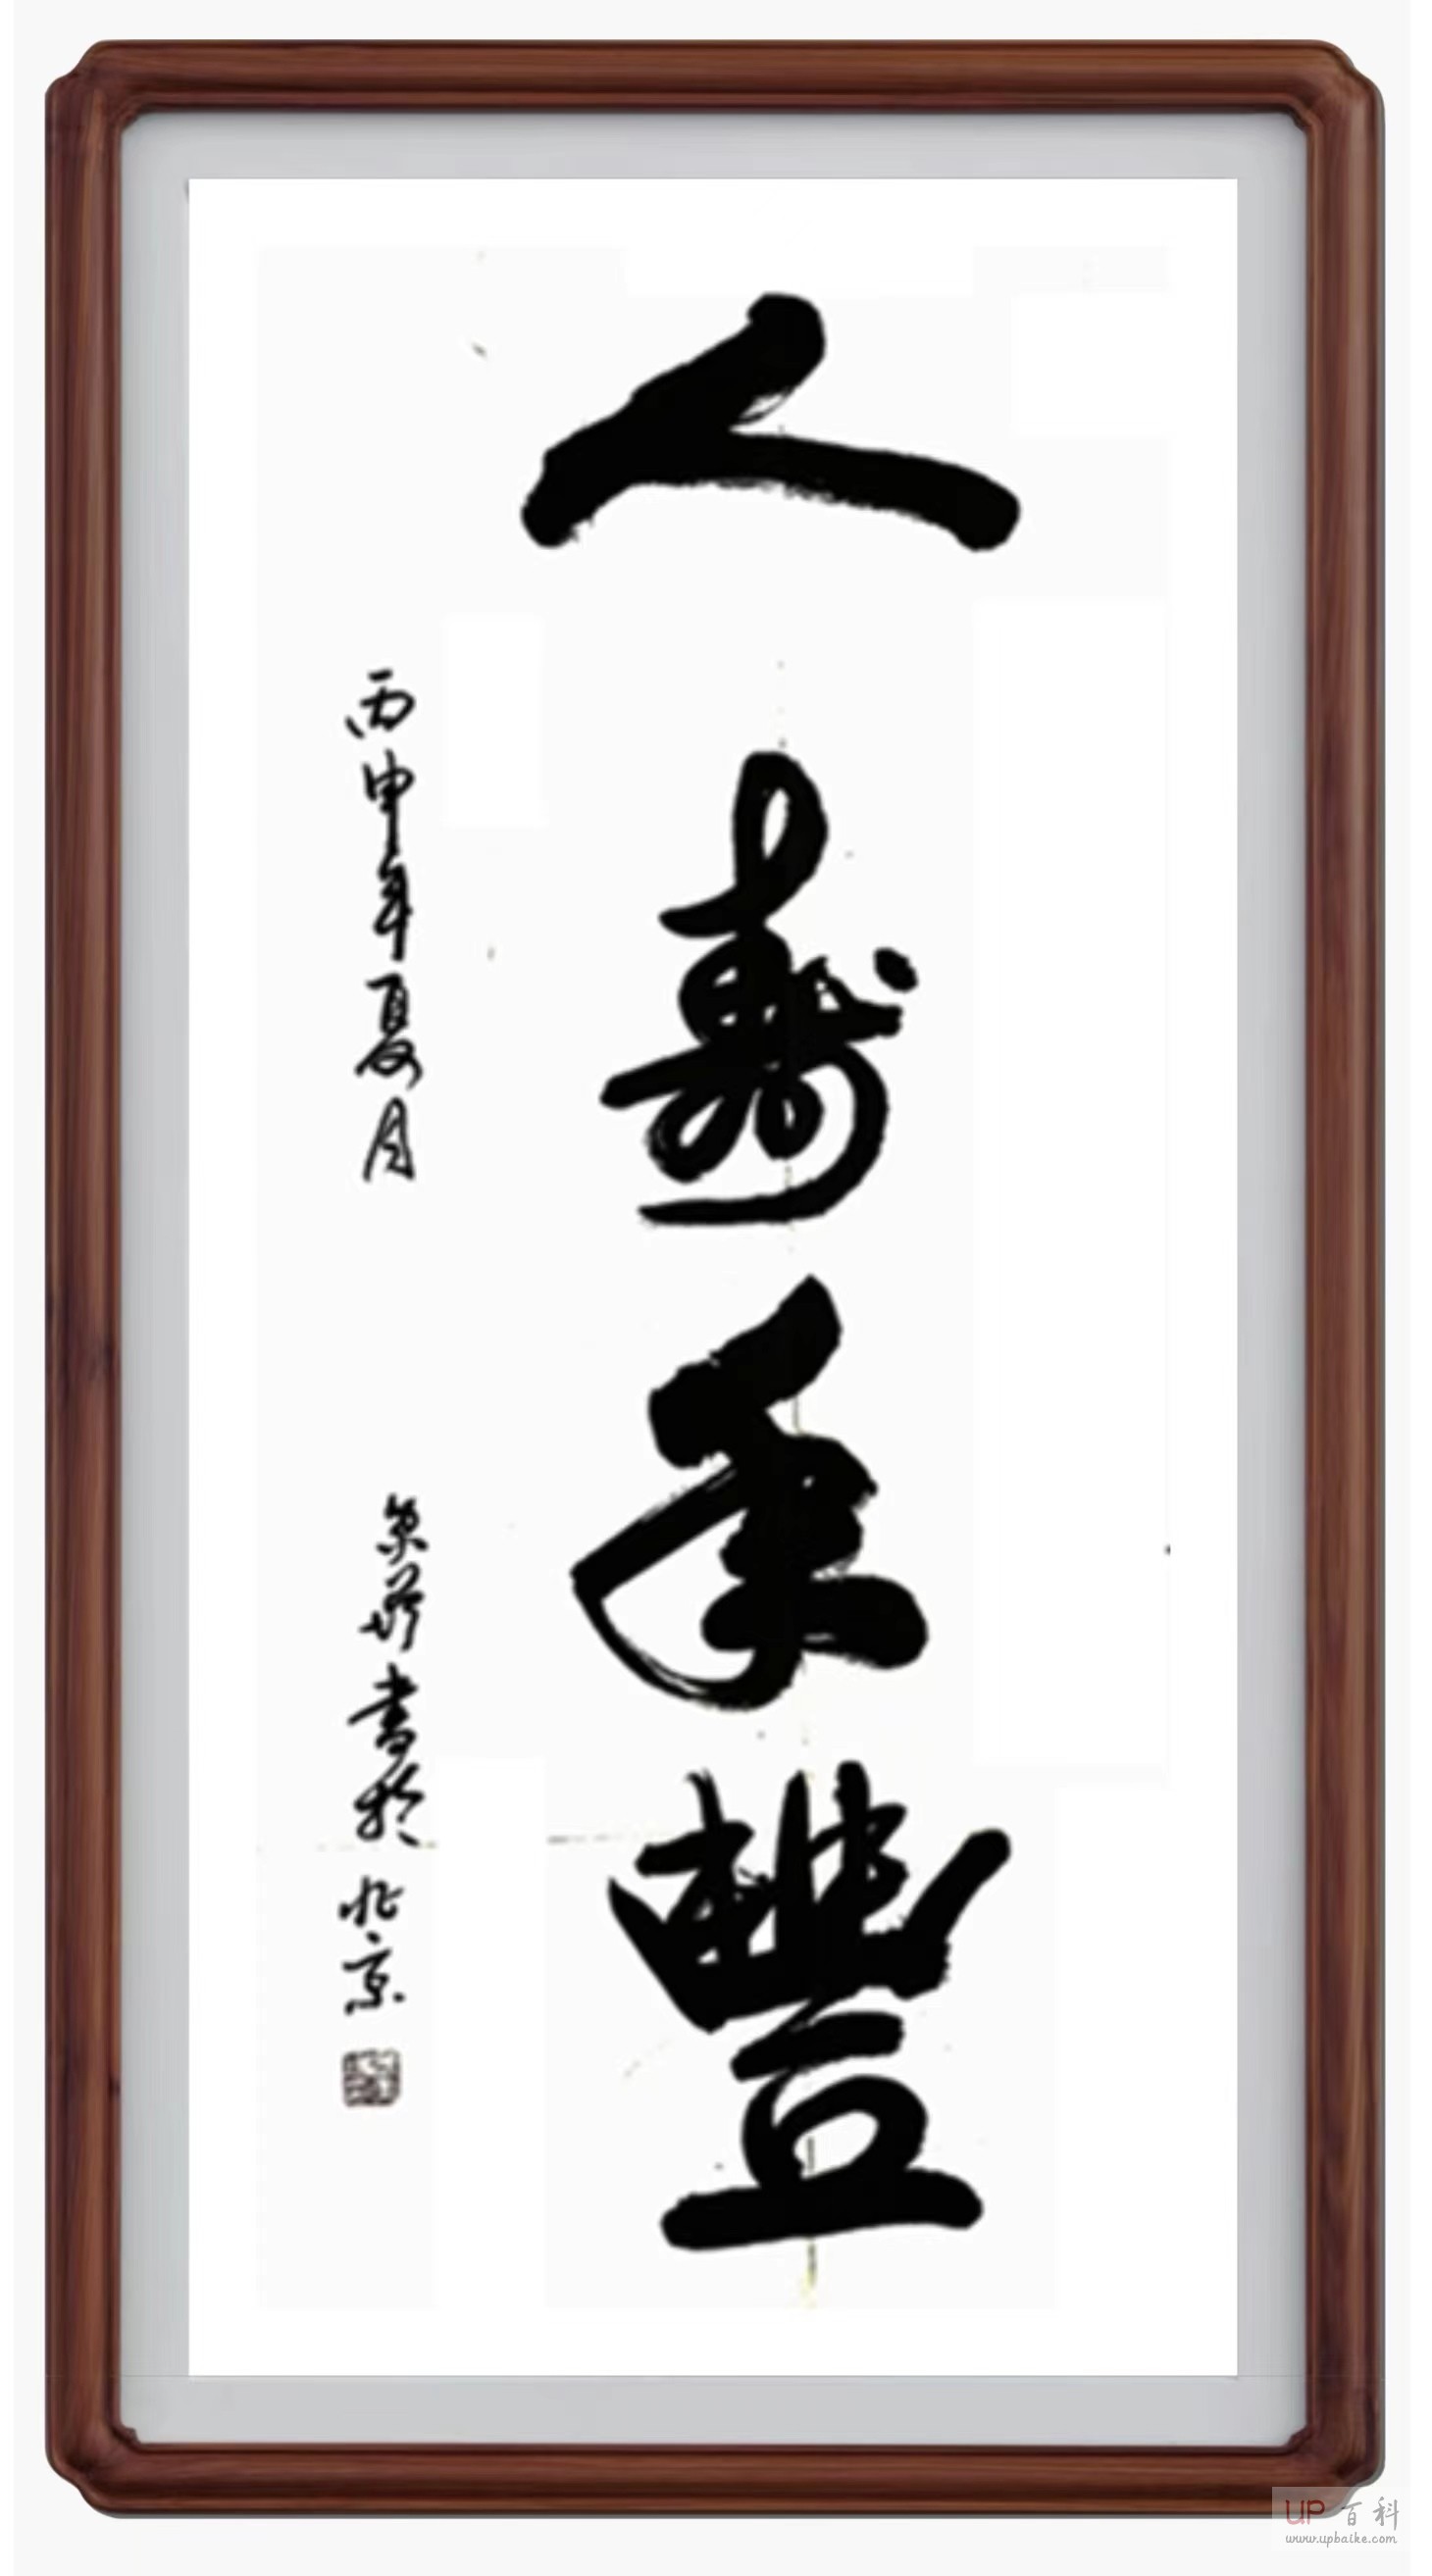 人壽年豐
丙申年夏月
書於北京
UP百科
www.upbaike.com